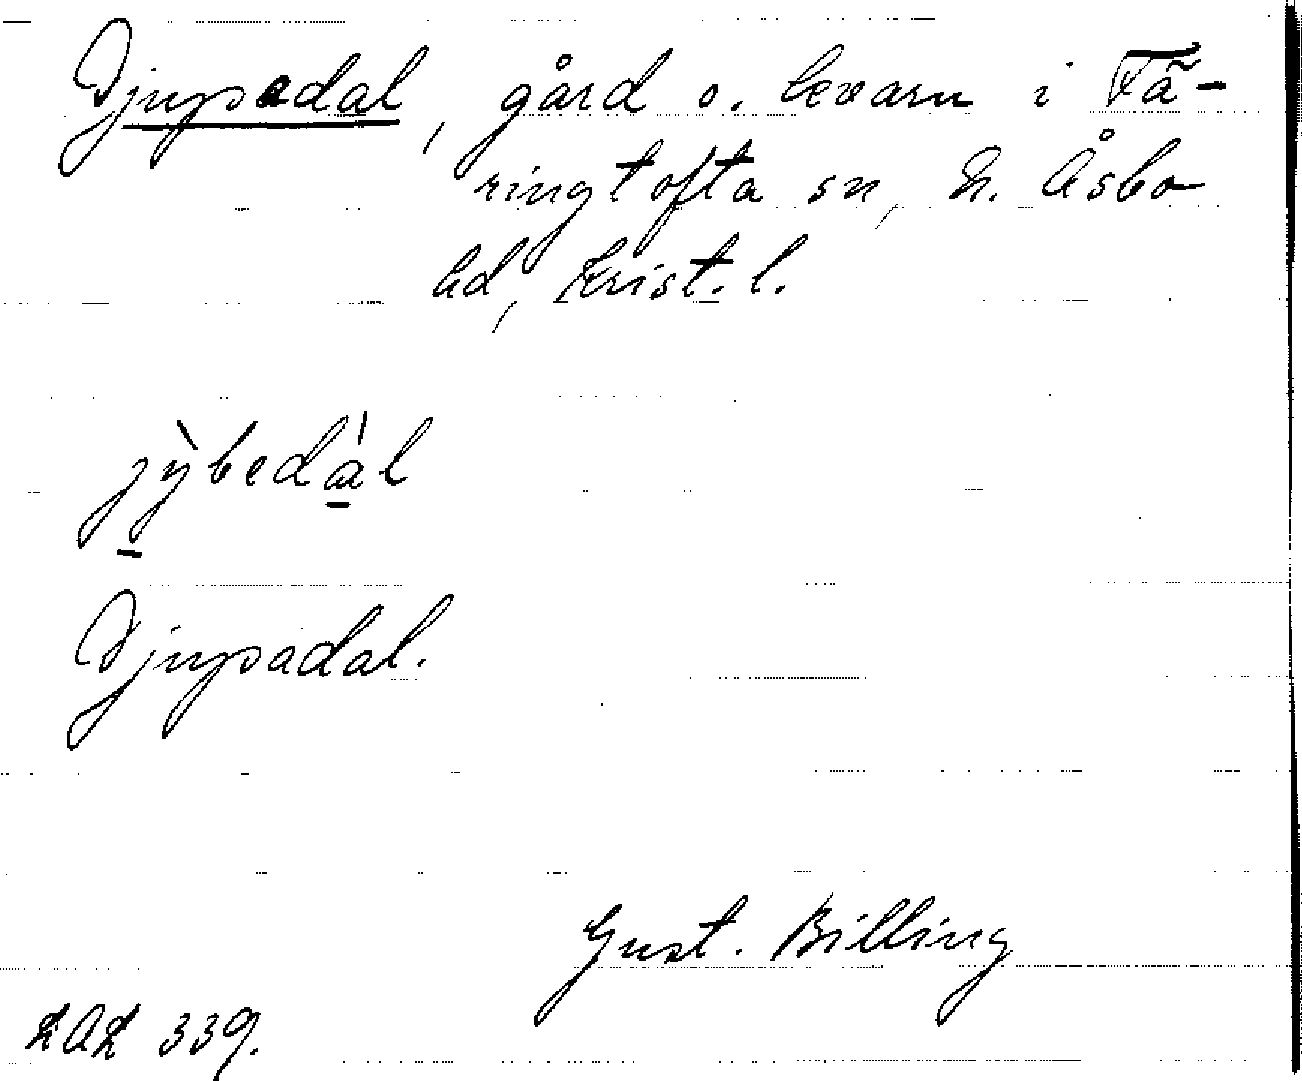 Djupadal, gård o. kvarn i Fä-
ringtofta sn, N. Åsbo
hd, Krist. l.
jỳbedál
Djupadal.
Gust. Billing
LAL 339.